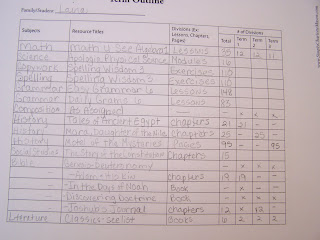 Term Outline
Family/Student:
# of Divisions
Subjects Resource Titles Divisions (Ex: Lessons, Chapters, Pages) Total Term 1 Term 2 Term 3
Math Math U See Lessons 12 12 11
Science Apologia Physical Science Modules 16
Copywork Spelling Wisdom 3 Exercises
Spelling Spelling Wisdom 3 Exercises
Grammar Easy Grammar Lessons 148
Grammar Daily Grams Lessons
Composition As Assigned x x x
History Tales of Ancient Egypt chapters 21 21 - -
History Mara, Daughter of the Nile Chapters 25 - 25 -
History Motel of the Mysteries Pages 95 - - 95
Social Studies The Story of the Chapters 15
Bible Genesis-Deuteronomy - x x x
- Adam + His Kin chapters 19 19 - -
- In the Days of Noah Book - x - -
- Discovering Doctrine Book - x x x
- Joshua's Journal chapters 12 x 12 -
Literature Classics: see list Books 6 2 2 2